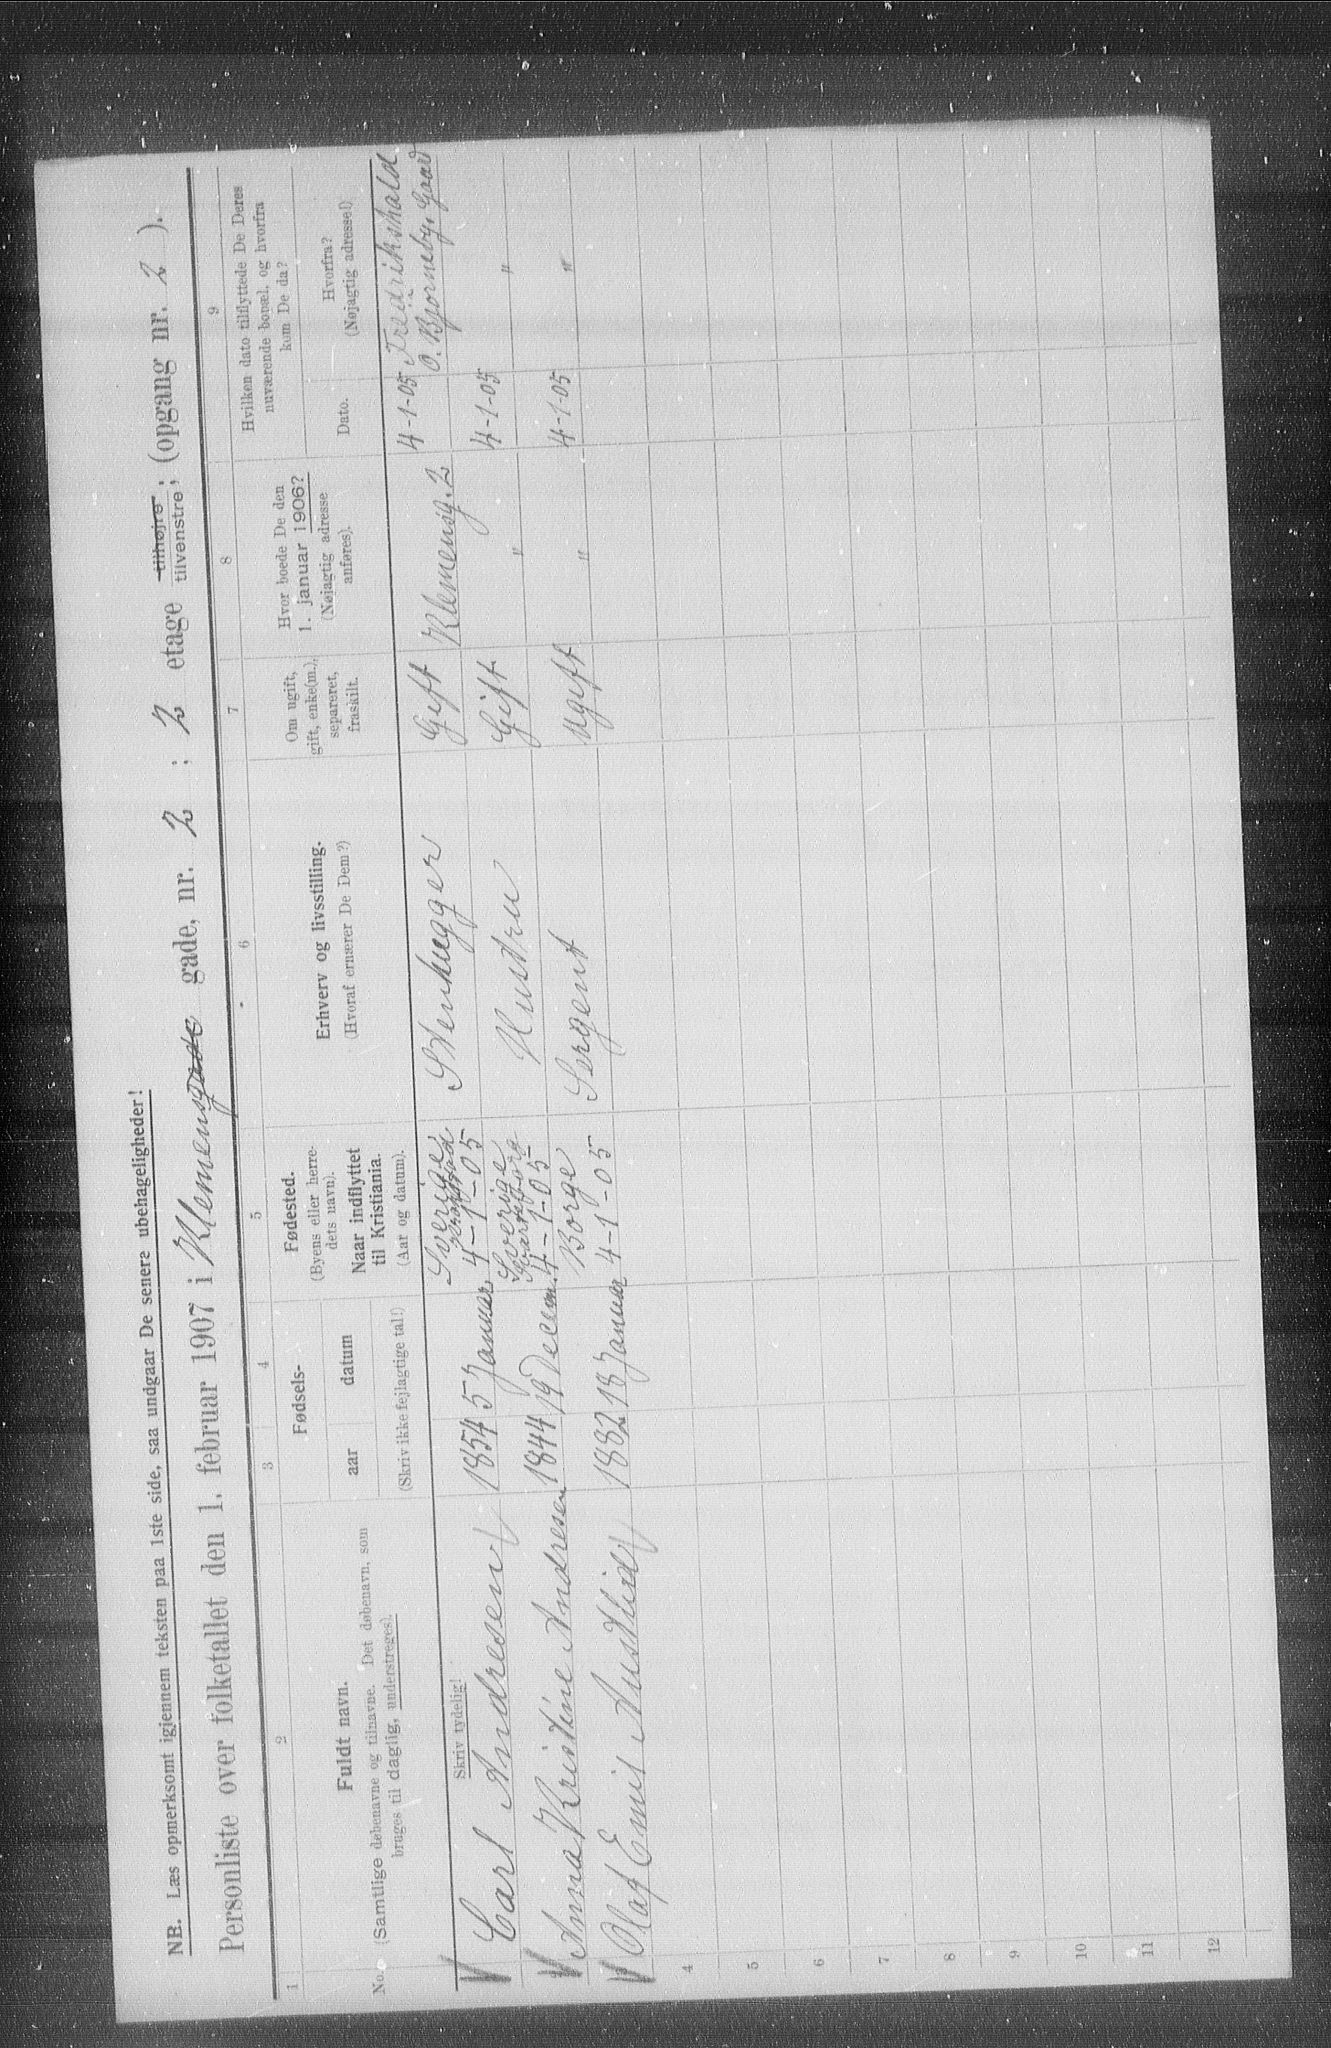 NB. Læs opmerksomt igjennem teksten paa 1ste side, saa undgaar De senere ubehageligheder!
Personliste over folketallet den 1. februar 1907 i Klemensgade gade, nr. 2 ; 2 etage tilhøjre ; tilvenstre ; (opgang nr. 2 ).
1 2 3 4 5 6 7 8 9
No.
Fuldt navn.
(Samtlige døbenavne og tilnavne. Det døbenavn, som
bruges til daglig, understreges).
Skriv tydelig!
Fødsels-
aar datum
(Skriv ikke fejlagtige tal!)
Fødested.
(Byens eller herre-
dets navn).
Naar indflyttet
til Kristiania.
(Aar og datum).
Erhverv og livsstilling.
(Hvoraf ernærer De Dem?)
Om ugift,
gift, enke(m.),
separeret,
fraskilt.
Hvor boede De den
1. januar 1906?
(Nøjagtig adresse
anføres).
Hvilken dato tilflyttede De Deres
nuværende bopæl, og hvorfra
kom De da?
Dato.
Hvorfra?
(Nøjagtig adresse!)
Carl Andresen 1854 5 Januar Sverige 4-1-05 Stenhugger Gift Klemensg. 2 4-1-05 Fredrikshald
O. Bjørneby, Gaard
Anna Kristine Andresen 1844 19 Decem. Sverige 4-1-05 Hustru Gift " 4-1-05 "
3 Olaf Emil Austlid 1882 18 Januar Borge 4-1-05 Sergent Ugift " 4-1-05 "
4
5
6
7
8
9
10
11
12